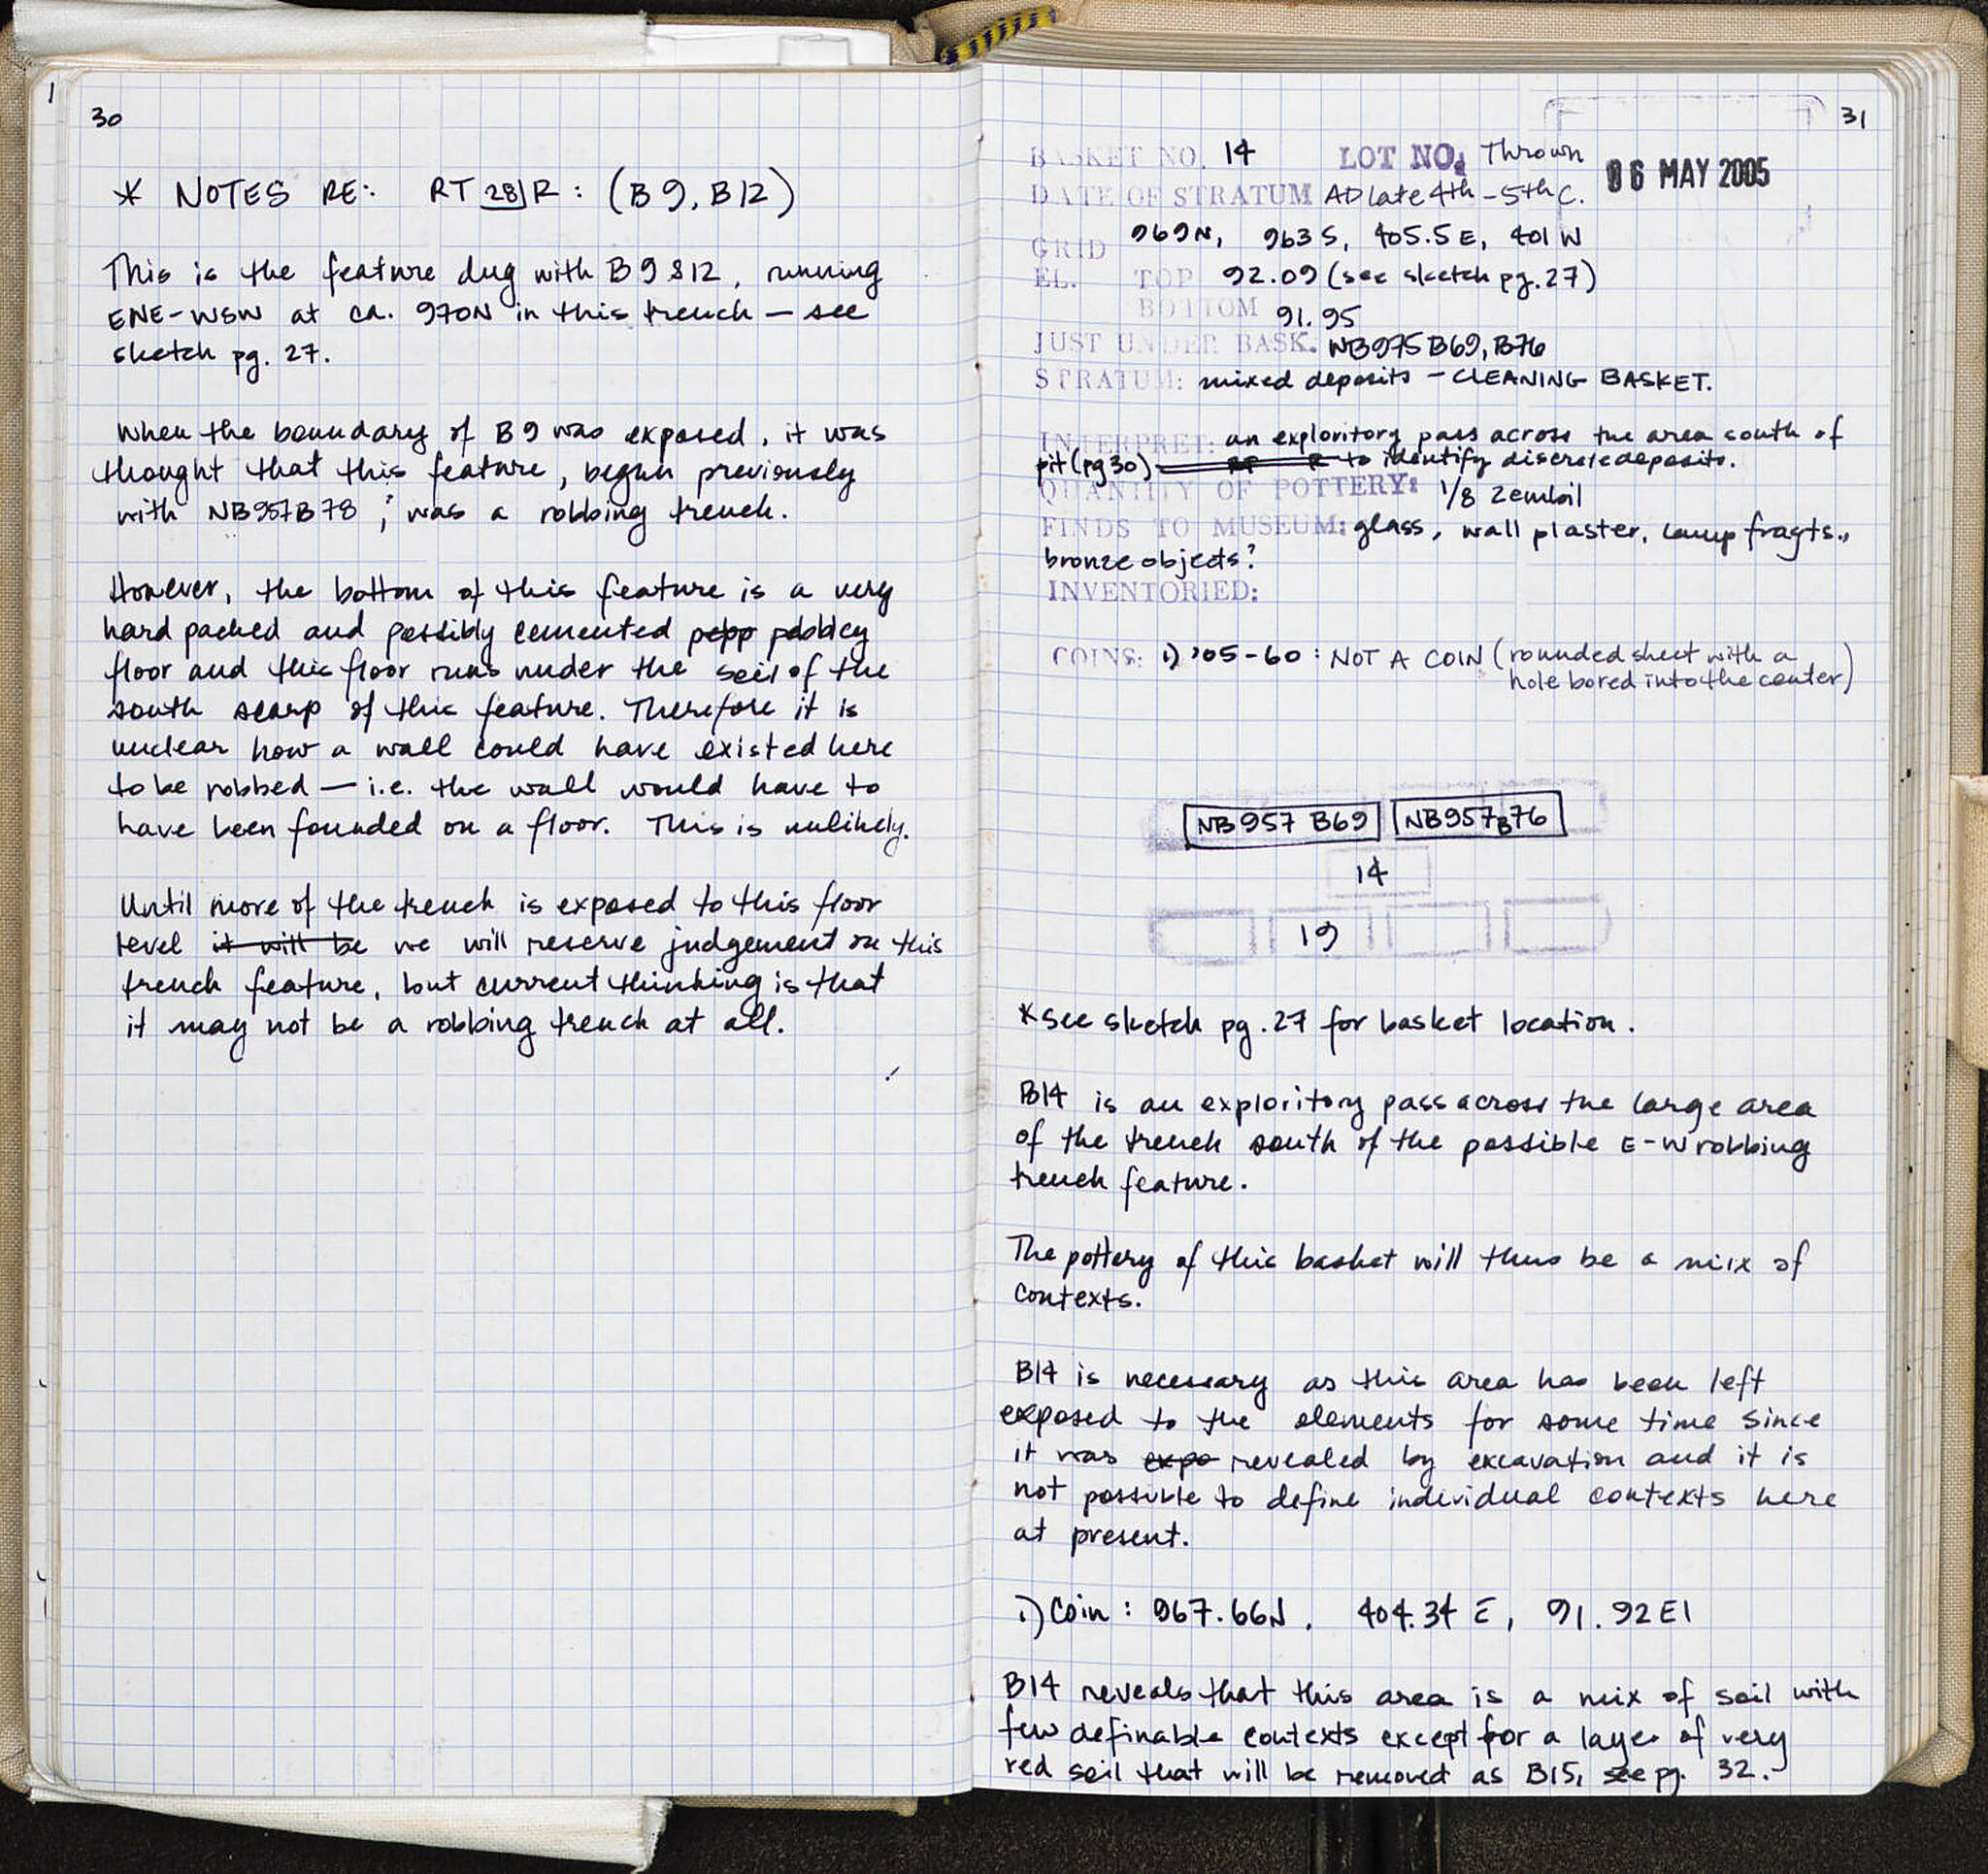 1
30
* NOTES RE: RT 28 R: (B9, B12)
This is the feature dug with B9 & 12, running
ENE-WSW at ca. 970N in this trench — see
sketch pg. 27.
When the boundary of B9 was exposed, it was
thought that this feature, begun previously
with NB957B78, was a robbing trench.
However, the bottom of this feature is a very
hard packed and possibly cemented pepp pebbley
floor and this floor runs under the soil of the
south scarp of this feature. Therefore it is
unclear how a wall could have existed here
to be robbed — i.e. the wall would have to
have been founded on a floor. This is unlikely.
Until more of the trench is exposed to this floor
level it will be we will reserve judgement on this
trench feature, but current thinking is that
it may not be a robbing trench at all.
31
BASKET NO. 14 LOT NO. Thrown
06 MAY 2005
DATE OF STRATUM AD late 4th - 5th C.
GRID 969N, 963S, 405.5E, 401W
EL. TOP 92.09 (see sketch pg. 27)
BOTTOM 91.95
JUST UNDER BASK. NB975B69, B76
STRATUM: mixed deposits - CLEANING BASKET.
INTERPRET: an exploritory pass across the area south of
pit (pg 30) RT R to identify discrete deposits.
QUANTITY OF POTTERY: 1/8 zembil
FINDS TO MUSEUM: glass, wall plaster, lamp fragts.,
bronze objects?
INVENTORIED:
COINS: 1) '05-60: NOT A COIN (rounded sheet with a
hole bored into the center)
NB957 B69 NB957B76
14
19
*see sketch pg. 27 for basket location.
B14 is an exploritory pass across the large area
of the trench south of the possible E-W robbing
trench feature.
The pottery of this basket will thus be a mix of
contexts.
B14 is necessary as this area has been left
exposed to the elements for some time since
it was expo revealed by excavation and it is
not possible to define individual contexts here
at present.
1) Coin: 967.66N, 404.34E, 91.92El
B14 reveals that this area is a mix of soil with
few definable contexts except for a layer of very
red soil that will be removed as B15, see pg. 32.